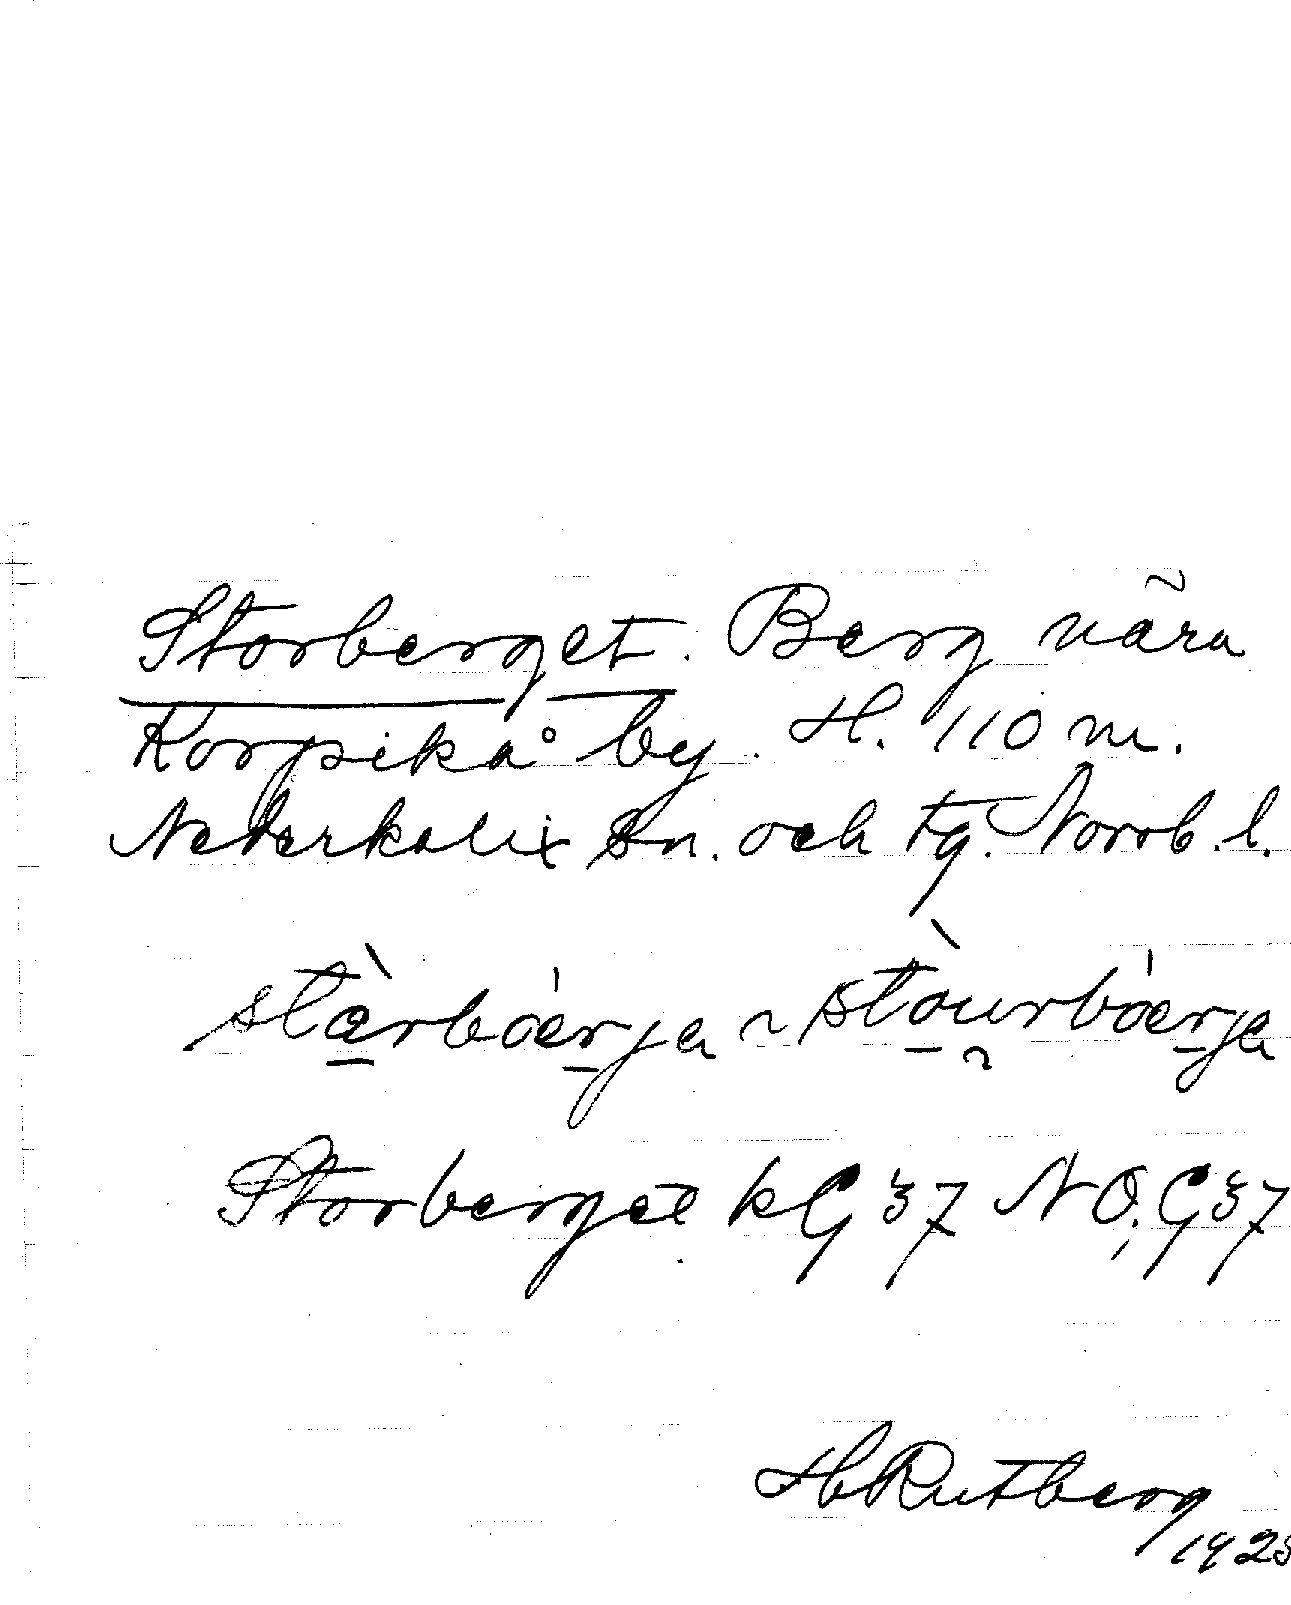 Storberget. Berg nära
Korpikå by. H. 110 m.
Nederkalix sn. och tg. Norrb. l.
stà̱rbóe̱rja ~ stò̱u̯rbóe̱rja
Storberget kG 37 NO, G 37
HRutberg